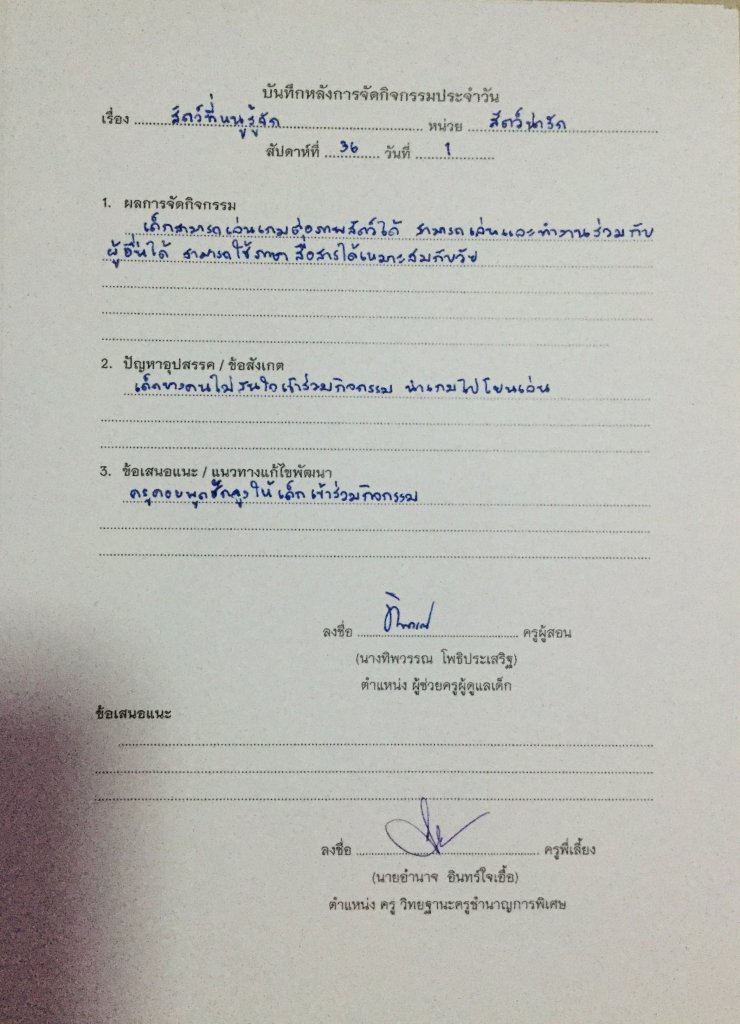 บันทึกหลังการจัดกิจกรรมประจำวัน
เรื่อง สัตว์ที่หนูรู้จัก หน่วย สัตว์น่ารัก
สัปดาห์ที่ 36 วันที่ 1
1. ผลการจัดกิจกรรม
เด็กสามารถเล่นเกมต่อภาพสัตว์ได้ สามารถเล่นและทำงานร่วมกับ
ผู้อื่นได้ สามารถใช้ภาษา สื่อสารได้เหมาะสมกับวัย
2. ปัญหาอุปสรรค / ข้อสังเกต
เด็กบางคนไม่สนใจเข้าร่วมกิจกรรม นำเกมไปโยนเล่น
3. ข้อเสนอแนะ / แนวทางแก้ไขพัฒนา
ครูคอยพูดชักจูงให้เด็กเข้าร่วมกิจกรรม
ลงชื่อ ทิพวรรณ ครูผู้สอน
(นางทิพวรรณ โพธิประเสริฐ)
ตำแหน่ง ผู้ช่วยครูผู้ดูแลเด็ก
ข้อเสนอแนะ
ลงชื่อ ครูพี่เลี้ยง
(นายอำนาจ อินทร์ใจเอื้อ)
ตำแหน่ง ครู วิทยฐานะครูชำนาญการพิเศษ